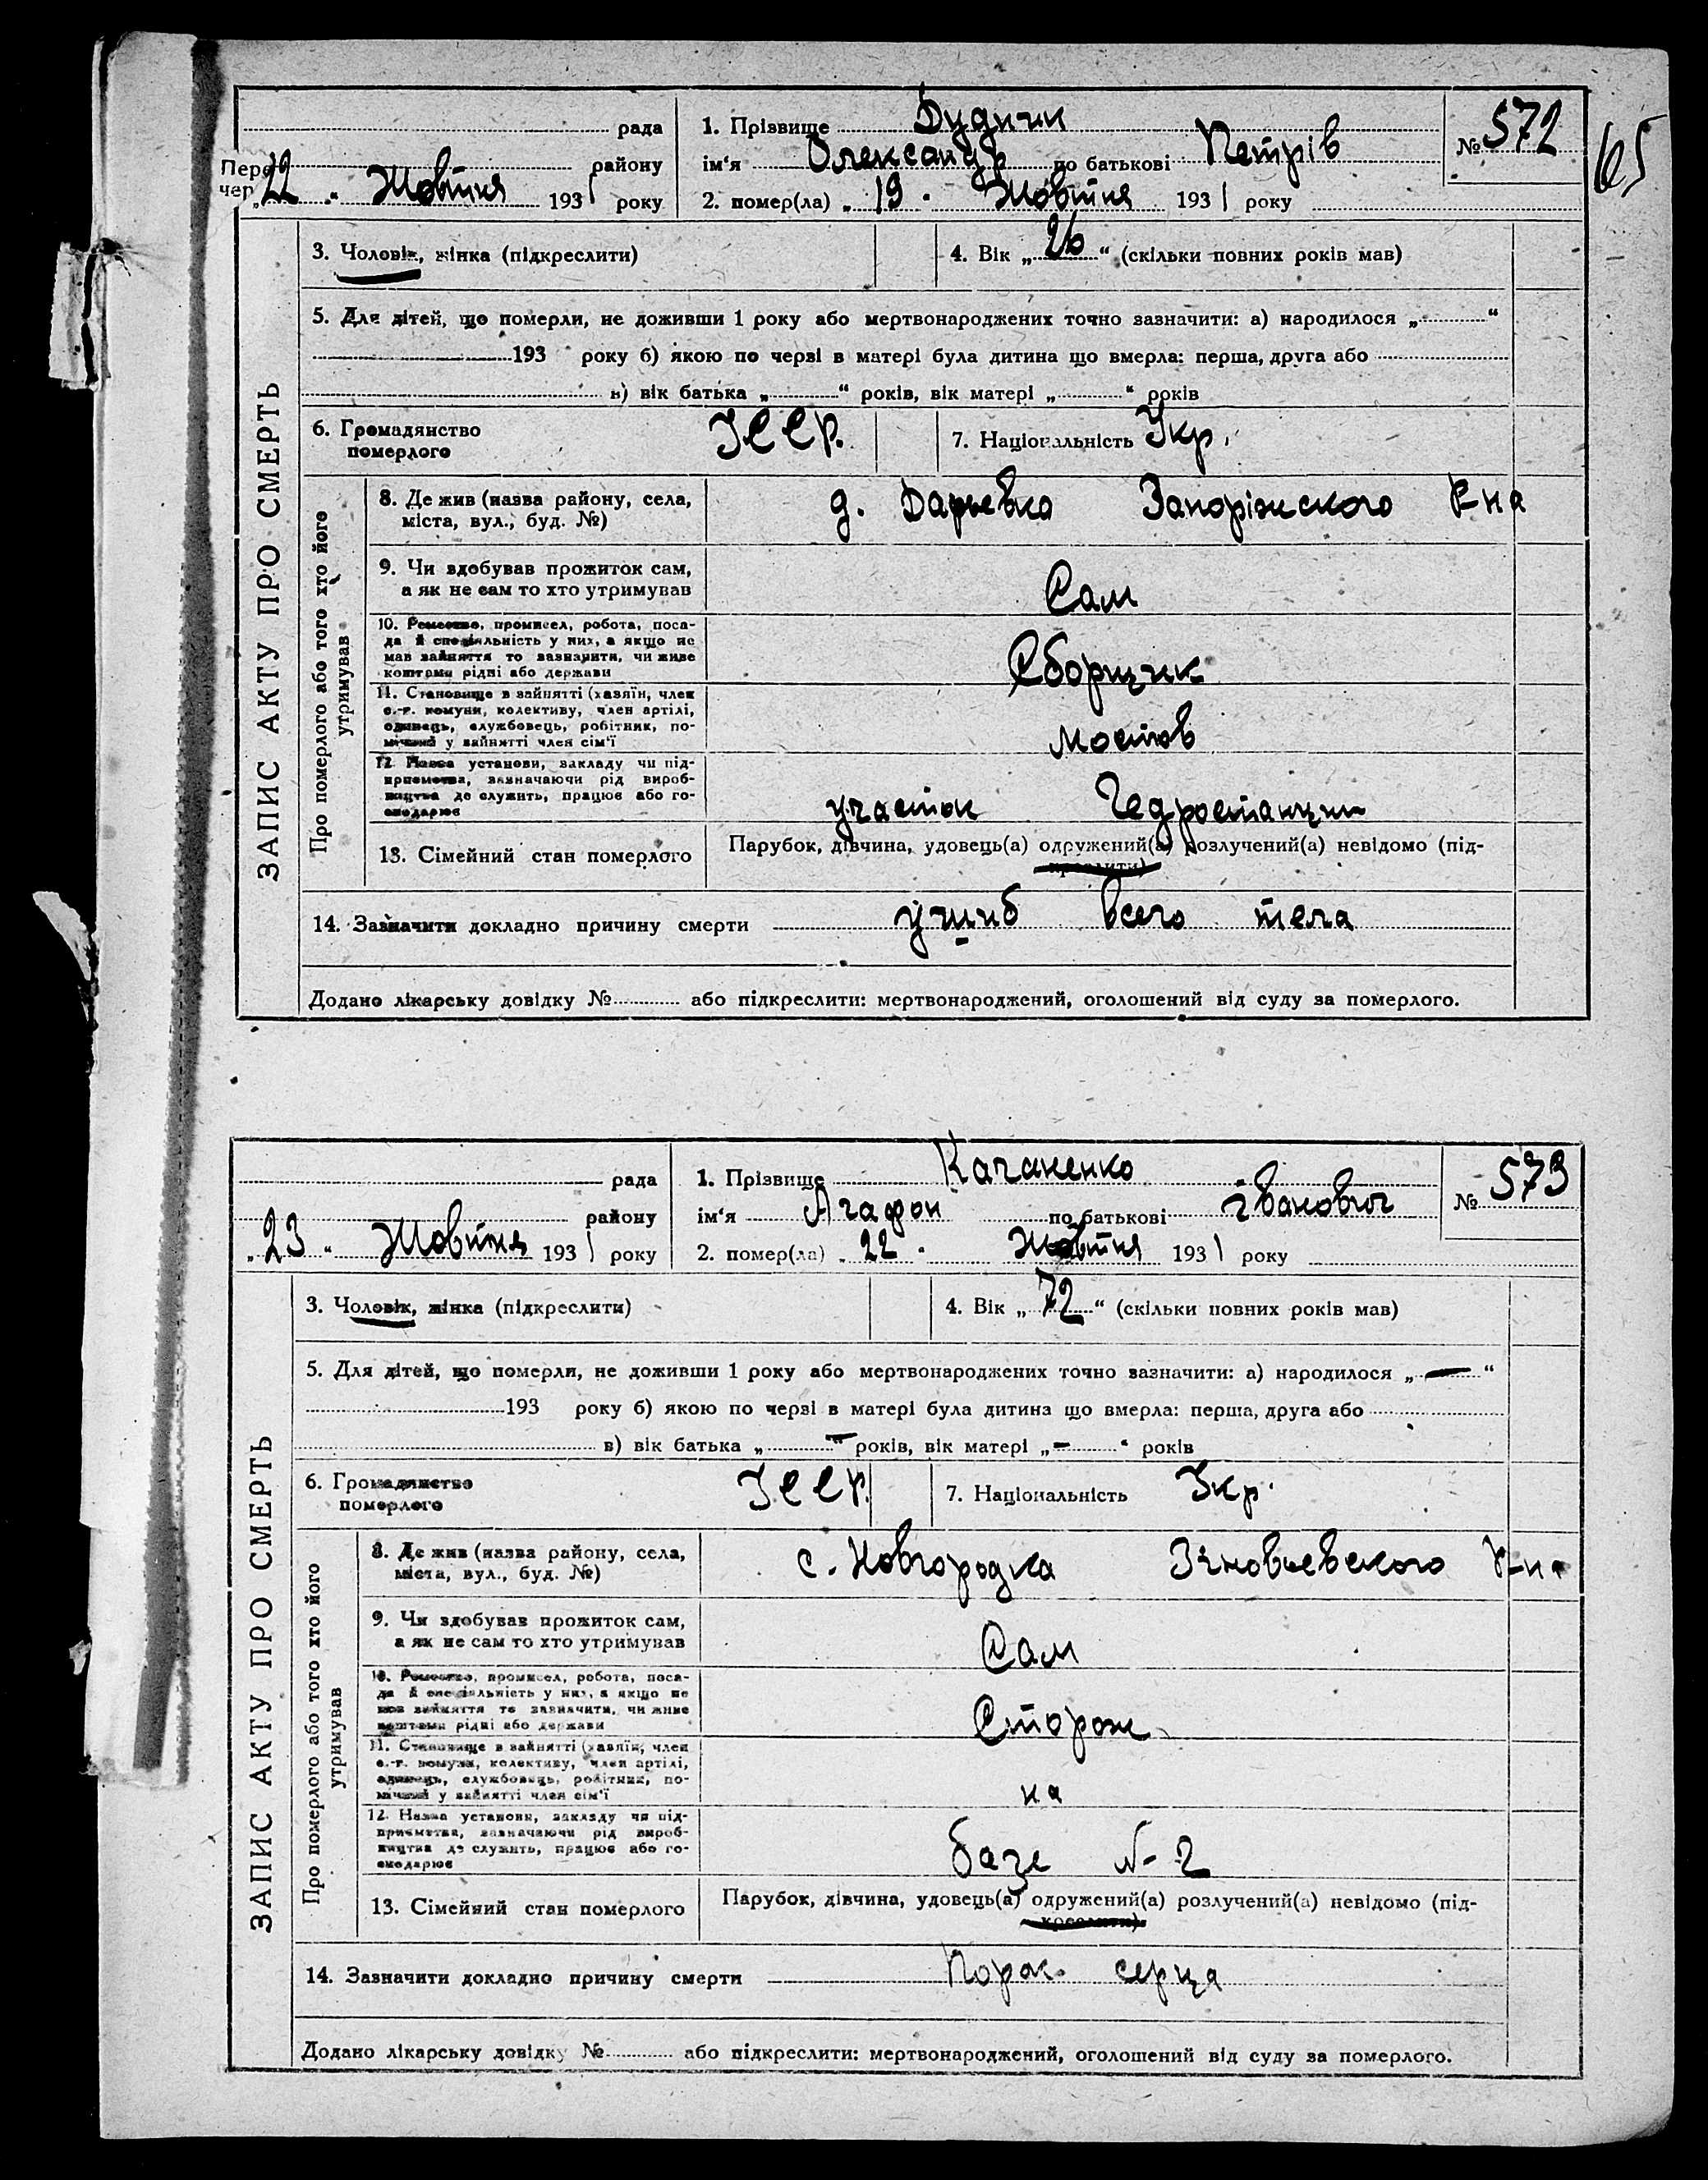 рада
району
Пере
чер „22 “ Жовтня 1931 року
1. Прізвище Дудчик
ім‘я Олександр по батькові Петрів
2. помер(ла) „ 19 “ Жовтня 1931 року
№ 572
65
ЗАПИС АКТУ ПРО СМЕРТЬ
3. Чоловік, жінка (підкреслити)
4. Вік „ 26 “ (скільки повних років мав)
5. Для дітей, що померли, не доживши 1 року або мертвонароджених точно зазначити: а) народилося „ “
193 року б) якою по черзі в матері була дитина що вмерла: перша, друга або
в) вік батька „ “ років, вік матері „ “ років
6. Громадянство померлого УССР.
7. Національність Укр.
Про померлого або того хто його утримував
8. Де жив (назва району, села,
міста, вул., буд. №)
д. Дарьевка Запоріжского Р-на
9. Чи здобував прожиток сам,
а як не сам то хто утримував
Сам
10. Ремество, промисел, робота, поса-
да й спеціяльність у них, а якщо не
мав зайняття то зазначити, чи живе
коштами рідні або держави
Сборщик
11. Становище в зайнятті (хазяїн, член
с.-г. комуни, колективу, член артілі,
одинець, службовець, робітник, по-
мічний у зайнятті член сім‘ї
мостов
12. Назва установи, закладу чи під-
приємства, зазначаючи рід вироб-
ництва де служить, працює або го-
сподарює
участок Гедростанции
13. Сімейний стан померлого
Парубок, дівчина, удовець(а) одружений(а) розлучений(а) невідомо (під-
креслити)
14. Зазначити докладно причину смерти ушиб всего тела
Додано лікарську довідку № або підкреслити: мертвонароджений, оголошений від суду за померлого.
рада
району
„ 23 “ Жовтня 1931 року
1. Прізвище Качаненко
ім‘я Агафон по батькові Іванович
2. помер(ла) „ 22 “ Жовтня 1931 року
№ 573
ЗАПИС АКТУ ПРО СМЕРТЬ
3. Чоловік, жінка (підкреслити)
4. Вік „ 72 “ (скільки повних років мав)
5. Для дітей, що померли, не доживши 1 року або мертвонароджених точно зазначити: а) народилося „ — “
193 року б) якою по черзі в матері була дитина що вмерла: перша, друга або
в) вік батька „ — “ років, вік матері „ — “ років
6. Громадянство померлого УССР.
7. Національність Укр.
Про померлого або того хто його утримував
8. Де жив (назва району, села,
міста, вул., буд. №)
с. Новгородка Зіновьевского Р-на
9. Чи здобував прожиток сам,
а як не сам то хто утримував
Сам
10. Ремество, промисел, робота, поса-
да й спеціяльність у них, а якщо не
мав зайняття то зазначити, чи живе
коштами рідні або держави
Сторож
11. Становище в зайнятті (хазяїн, член
с.-г. комуни, колективу, член артілі,
одинець, службовець, робітник, по-
мічний у зайнятті член сім‘ї
на
12. Назва установи, закладу чи під-
приємства, зазначаючи рід вироб-
ництва де служить, працює або го-
сподарює
базе № 2
13. Сімейний стан померлого
Парубок, дівчина, удовець(а) одружений(а) розлучений(а) невідомо (під-
креслити)
14. Зазначити докладно причину смерти Порок серца
Додано лікарську довідку № або підкреслити: мертвонароджений, оголошений від суду за померлого.